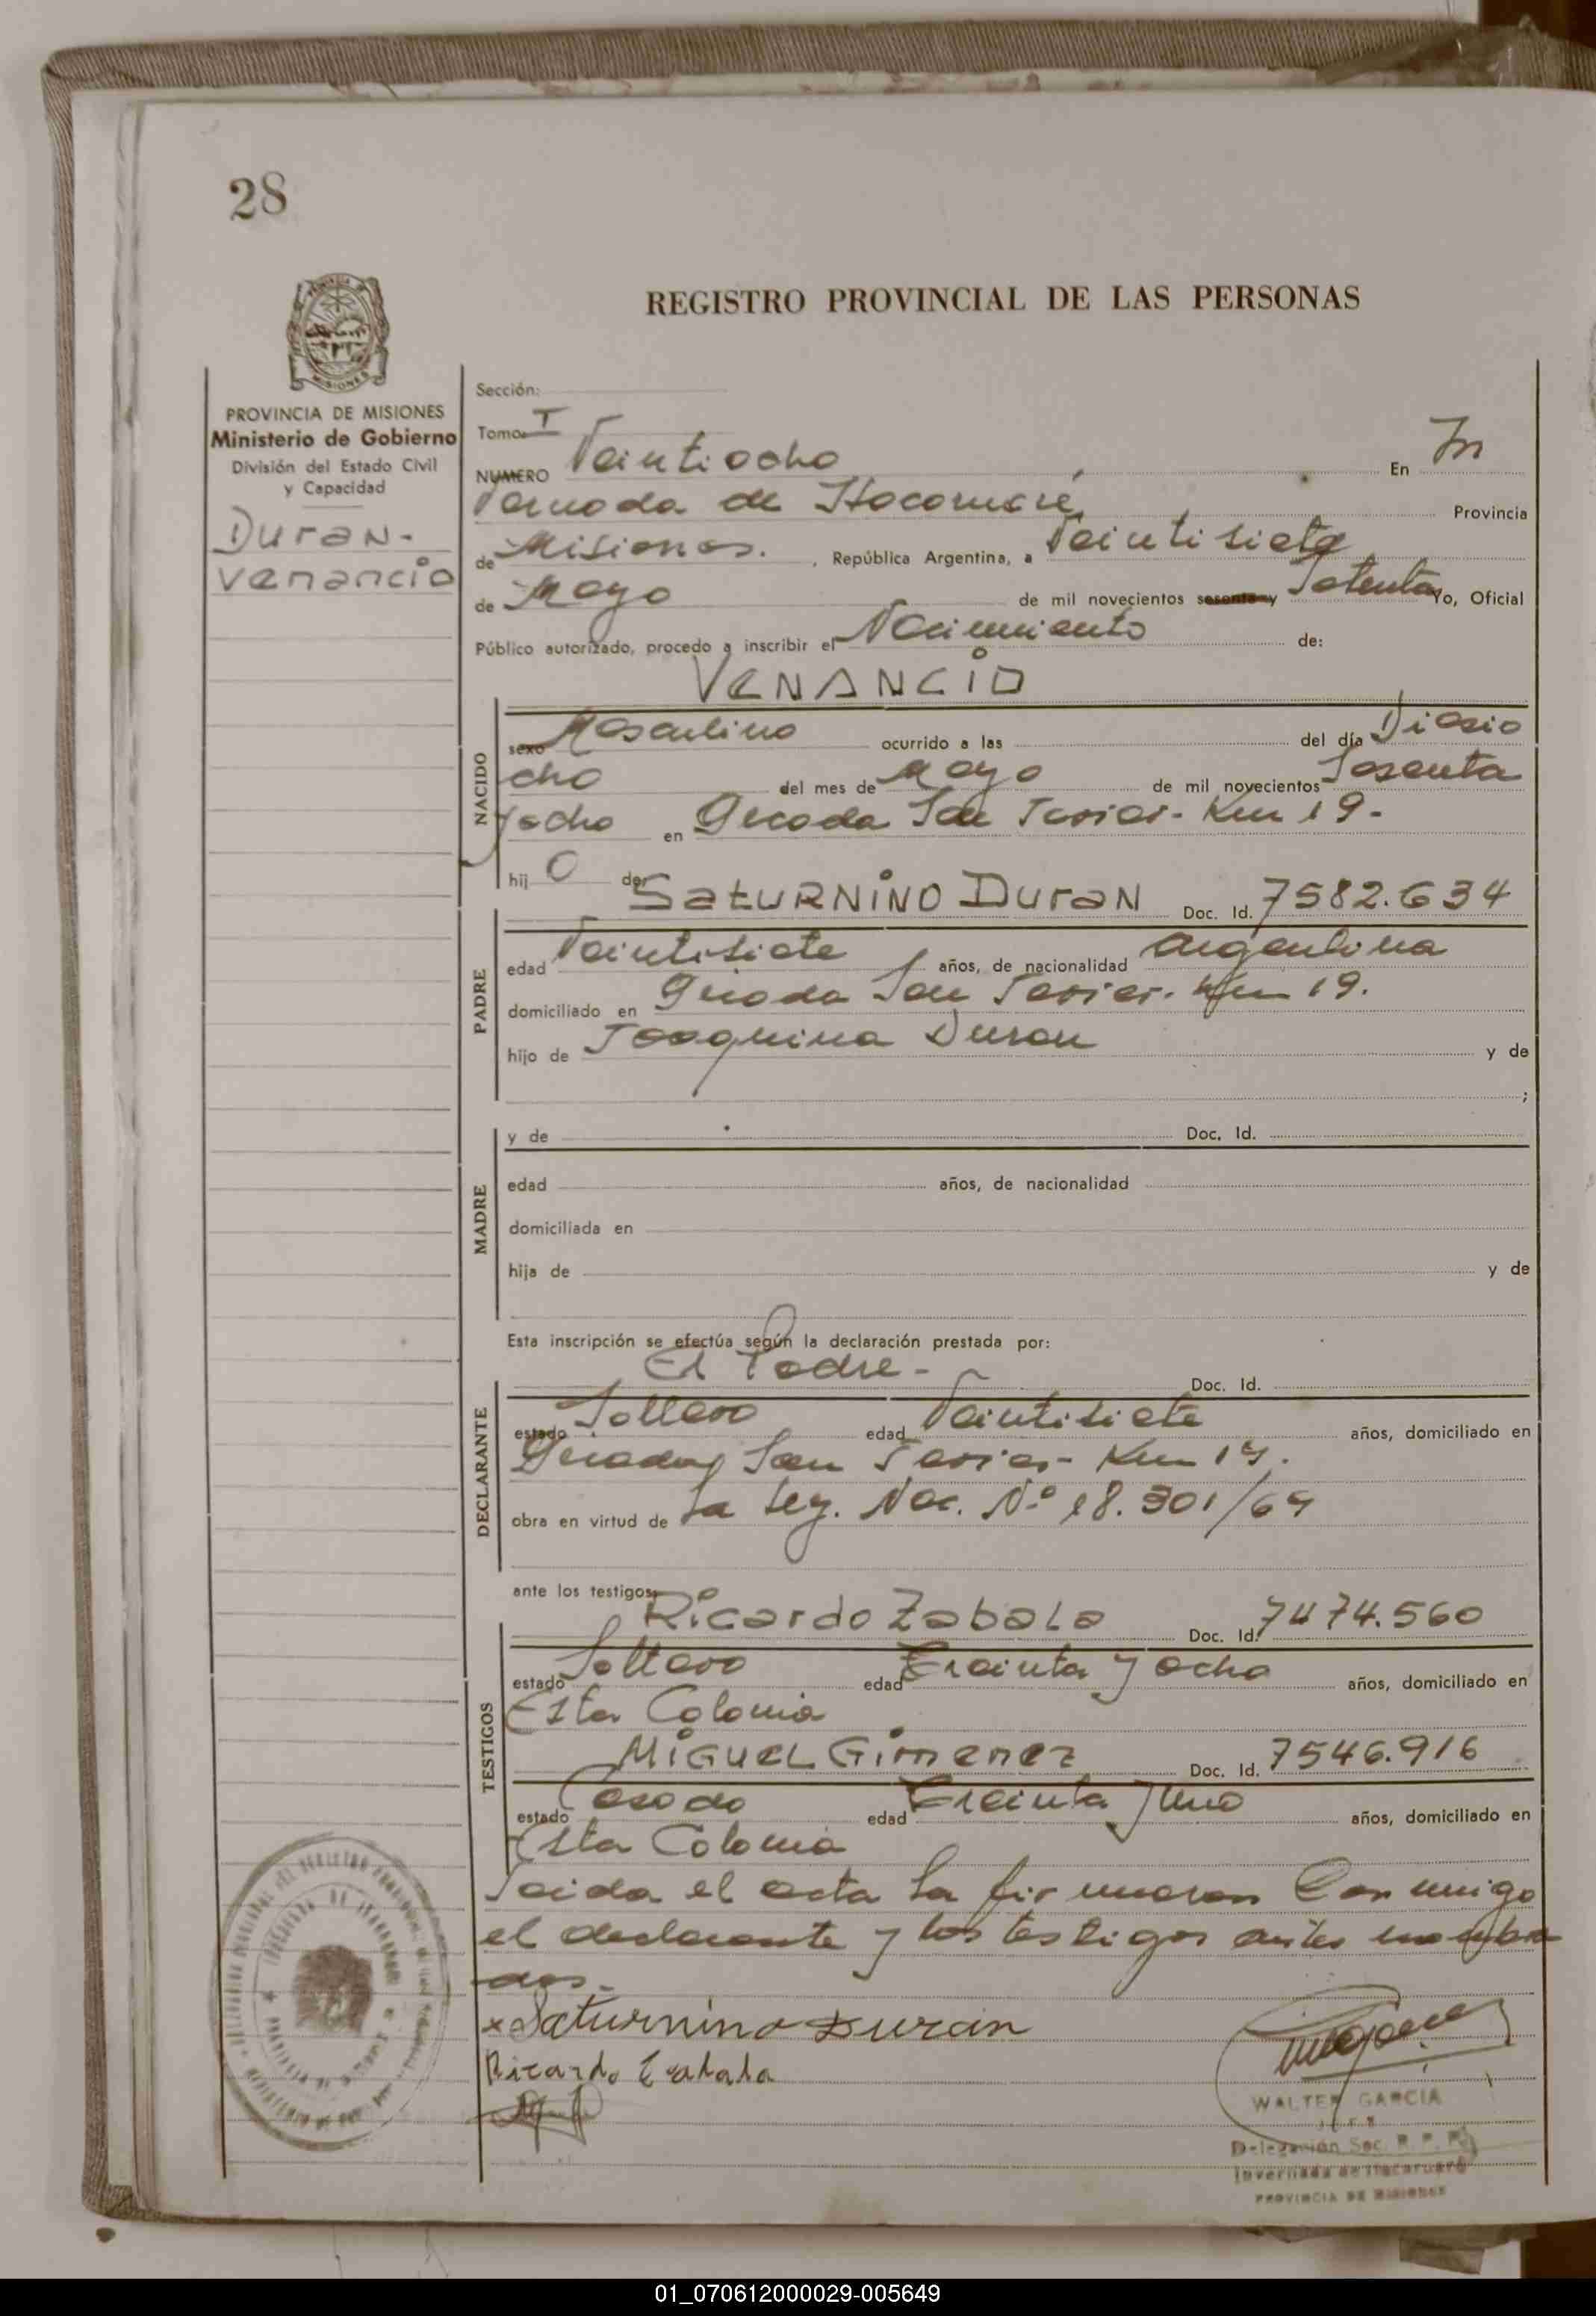 28
REGISTRO PROVINCIAL DE LAS PERSONAS
PROVINCIA DE MISIONES
Ministerio de Gobierno
División del Estado Civil
y Capacidad
DURAN.
Venancio
Sección:
Tomo: I
NUMERO Veintiocho En In
vernada de Itacaruaré, Provincia
de Misiones. , República Argentina, a Veintisiete
de Mayo de mil novecientos sesenta y Setenta Yo, Oficial
Público autorizado, procedo a inscribir el Nacimiento de:
VENANCIO
NACIDO
sexo Masculino ocurrido a las del día Diesio
cho del mes de Mayo de mil novecientos Sesenta
y ocho en Picada San Javier - Km 19 -
hij o de SATURNINO DURAN Doc. Id. 7582.634
PADRE
edad Veintisiete años, de nacionalidad Argentina
domiciliado en Picada San Javier - Km 19.
hijo de Joaquina Duran y de
;
MADRE
y de Doc. Id.
edad años, de nacionalidad
domiciliada en
hija de y de
Esta inscripción se efectúa según la declaración prestada por:
El Padre - Doc. Id.
DECLARANTE
estado Soltero edad Veintisiete años, domiciliado en
Picada San Javier - Km 19.
obra en virtud de La Ley. Nac. Nº 18.301/69
ante los testigos:
Ricardo Zabala Doc. Id. 7474.560
TESTIGOS
estado Soltero edad Treinta y ocho años, domiciliado en
Esta Colonia
MIGUEL GIMENEZ Doc. Id. 7546.916
estado Casado edad Treinta y uno años, domiciliado en
Esta Colonia
Leida el acta la firmaron Conmigo
el declarante y los testigos antes nombra
dos.
x Saturnino Duran
Ricardo Zabala
WALTER GARCIA
JEFE
Delegación Sec. R. P. P.
Invernada de Itacaruaré
PROVINCIA DE MISIONES
01_070612000029-005649